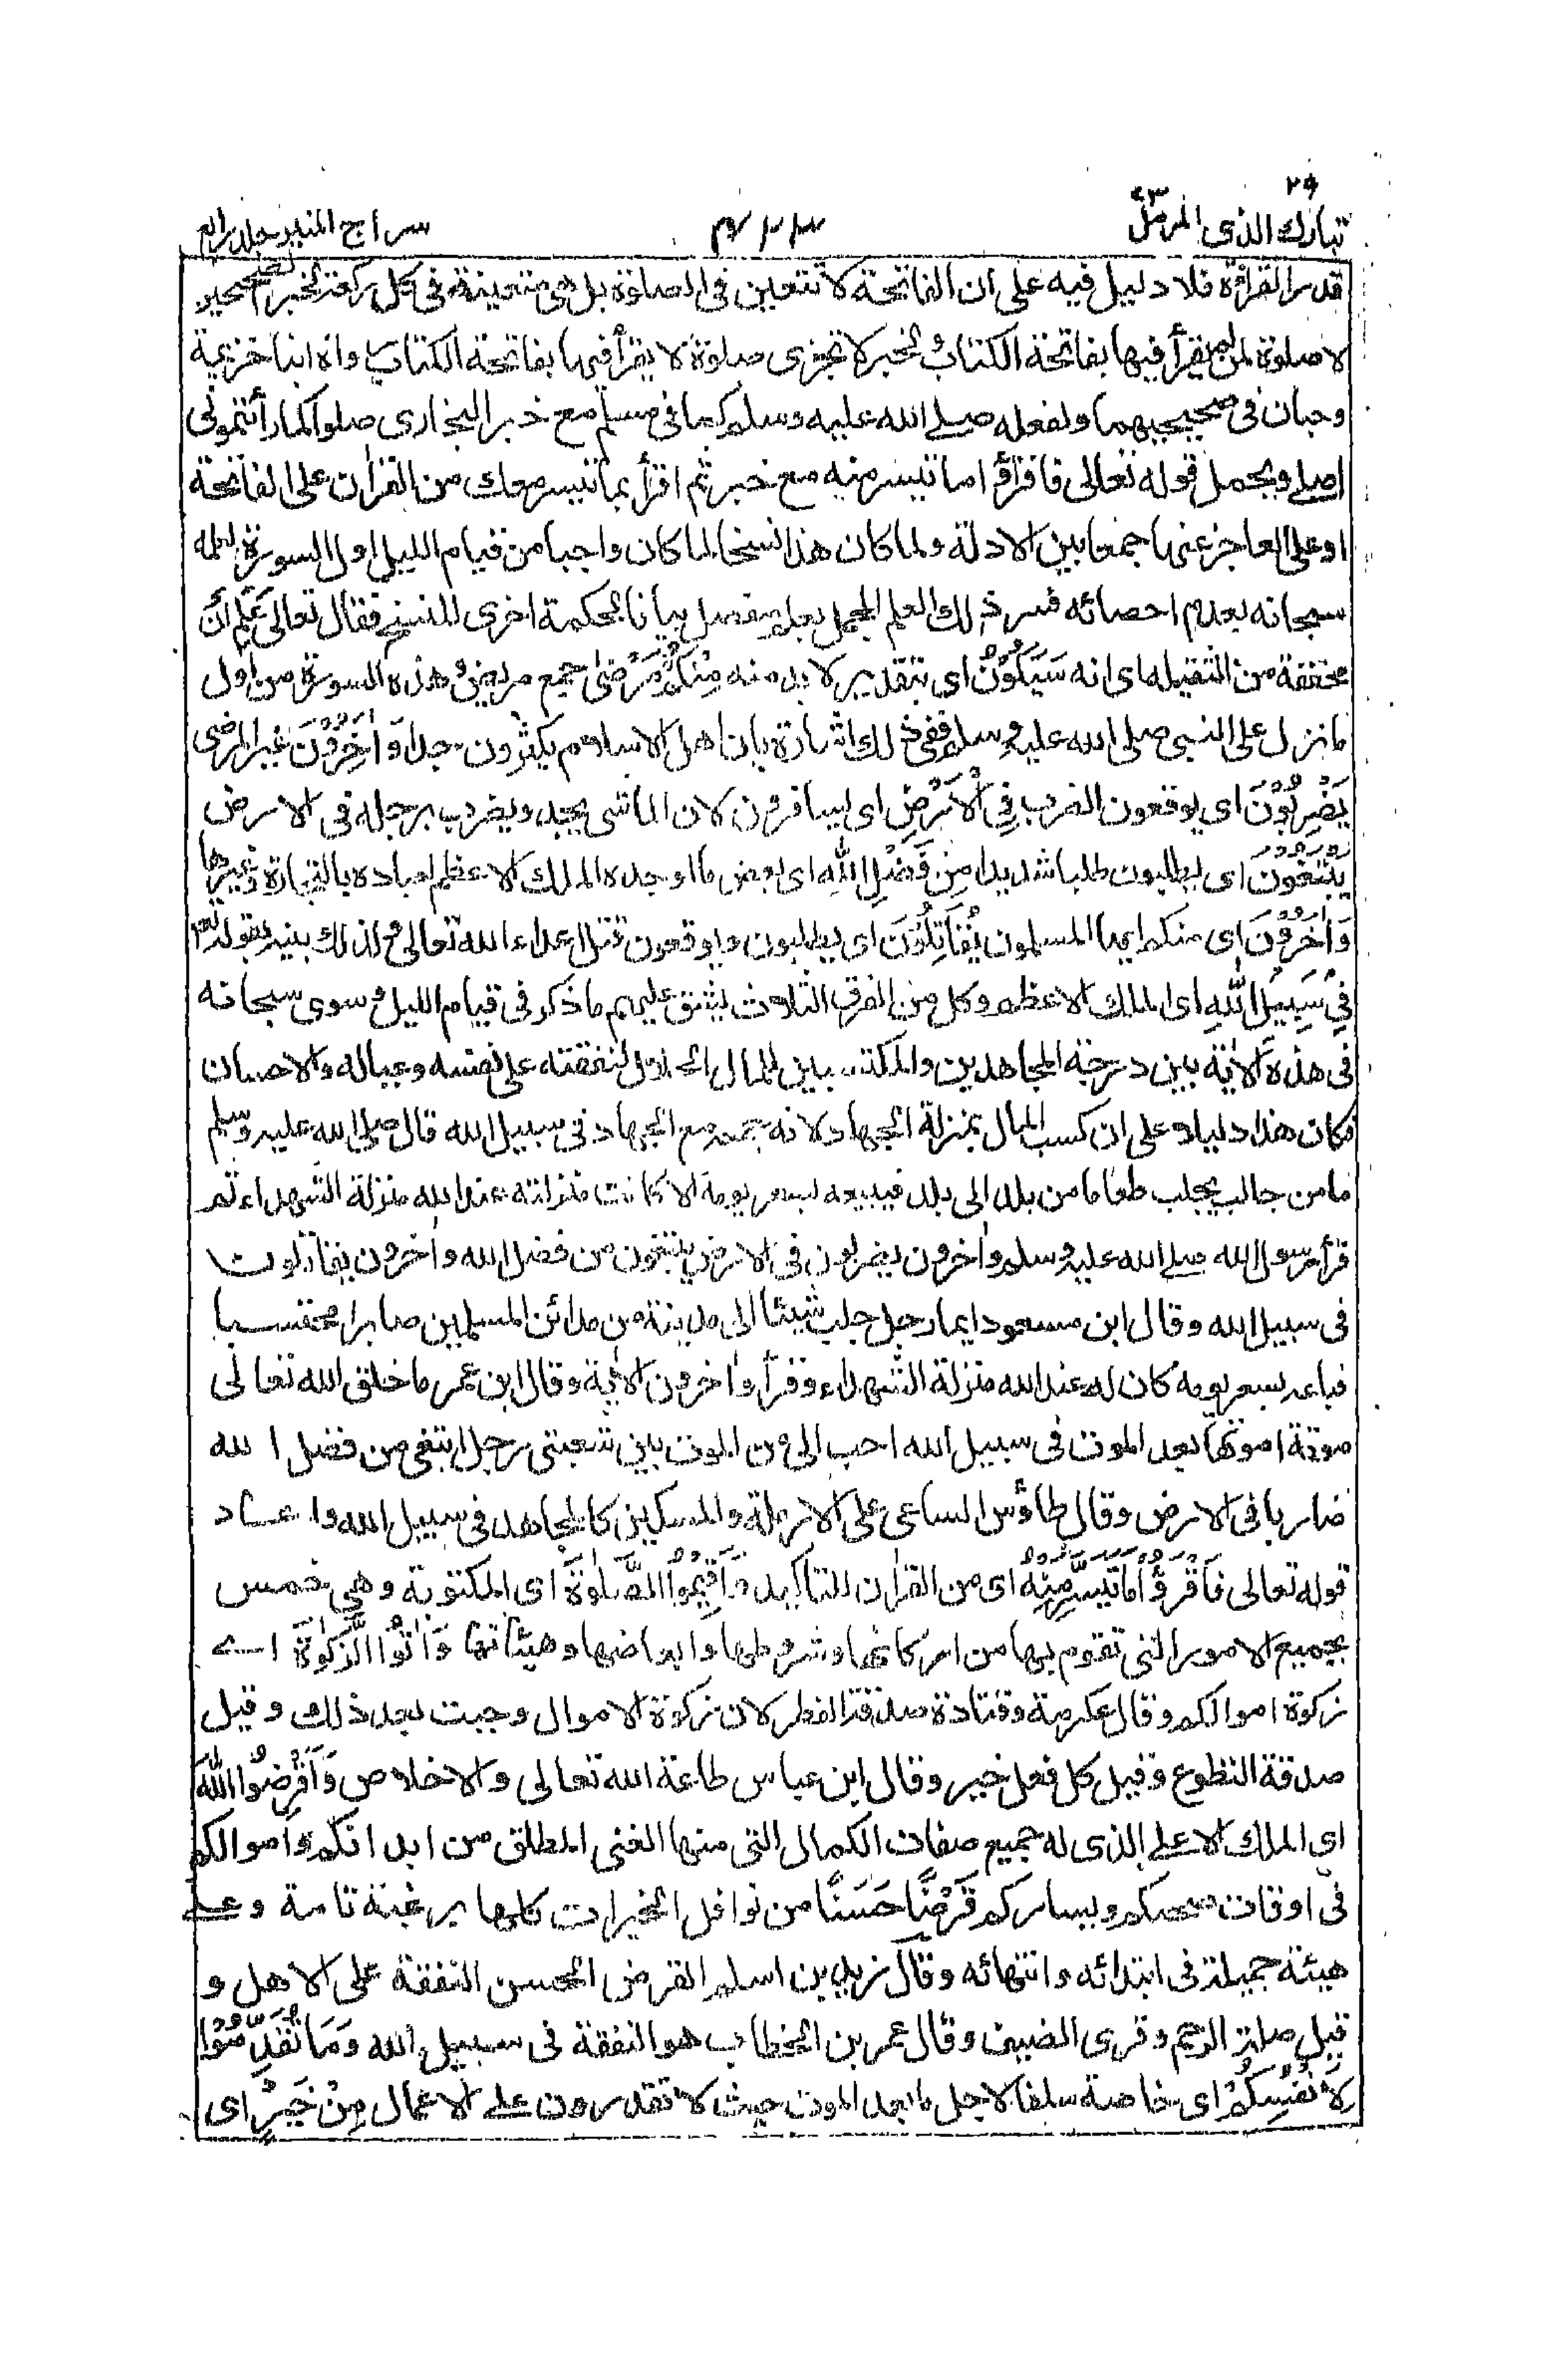 تبارك الذى ٢٩ المزمل ٧٣
سراج المنير جلد رابع
قدر القراءة فلا دليل فيه على ان الفاتحة لا تتعين فى الصلوة بل هى متعينة فى كل ركعة لخبر الصحيحين
لا صلوة لمن لم يقرأ فيها بفاتحة الكتاب ولخبر لا تجزى صلوة لا يقرأ فيها بفاتحة الكتاب رواه ابنا خزيمة
وحبان فى صحيحيهما ولفعله صلے الله عليه وسلم كما فى مسلم مع خبر البخارى صلوا كما رأيتمونى
اصلے ويحمل قوله تعالى فاقرؤا ما تيسر منه مع خبر ثم اقرأ بما تيسر معك من القرآن على الفاتحة
او على العاجز عنها جمعا بين الادلة ولما كان هذا نسخا لما كان واجبا من قيام الليل اول السورة لعلمه
سبحانه بعدم احصائه فسر ذلك العلم المجمل بعلم مفصل بيانا لحكمة اخرى للنسخ فقال تعالى عَلِمَ أَنْ
مخففة من الثقيلة اى انه سَيَكُوْنُ اى بتقدير لا بد منه مِنْكُمْ مَرْضٰى جمع مريض وهذه السورة من اول
ما نزل على النبى صلى الله عليه وسلم ففى ذلك اشارة بان اهل الاسلام يكثرون جدا وَاٰخَرُوْنَ غير المرضى
يَضْرِبُوْنَ اى يوقعون الضرب فِى الْاَرْضِ اى يسافرون لان الماشى يجد ويضرب برجله فى الارض
يَبْتَغُوْنَ اى يطلبون طلبا شديدا مِنْ فَضْلِ اللهِ اى بعض ما اوجده الملك الاعظم لعباده بالتجارة وغيرها
وَاٰخَرُوْنَ اى منكم ايها المسلمون يُقَاتِلُوْنَ اى يطلبون ويوقعون قتل اعداء الله تعالى ولذلك بينه بقوله تعالى
فِىْ سَبِيْلِ اللهِ اى الملك الاعظم وكل من الفرق الثلاث يشق عليهم ما ذكر فى قيام الليل وسوى سبحانه
فى هذه الاٰية بين درجة المجاهدين والمكتسبين للمال الحلال لنفقته على نفسه وعياله والاحسان
فكان هذا دليلا على ان كسب المال بمنزلة الجهاد لانه جمعه مع الجهاد فى سبيل الله قال صلى الله عليه وسلم
ما من جالب يجلب طعاما من بلد الى بلد فيبيعه بسعر يومه الا كانت منزلته عند الله منزلة الشهداء ثم
قرأ رسول الله صلے الله عليه وسلم واٰخرون يضربون فى الارض يبتغون من فضل الله واٰخرون يقاتلون
فى سبيل الله وقال ابن مسعود ايما رجل جلب شيئا الى مدينة من مدائن المسلمين صابرا محتسبا
فباعه بسعر يومه كان له عند الله منزلة الشهداء وقرأ واٰخرون الاٰية وقال ابن عمر ما خلق الله تعالى
موتة اموتها بعد الموت فى سبيل الله احب الى من الموت بين شعبتى رجل ابتغى من فضل الله
ضاربا فى الارض وقال طاؤس الساعى على الارملة والمسكين كالمجاهد فى سبيل الله واعاد
قوله تعالى فَاقْرَؤُا مَا تَيَسَّرَ مِنْهُ اى من القرآن للتاكيد وَاَقِيْمُوا الصَّلٰوةَ اى المكتوبة وهى خمس
بجميع الامور التى تقوم بها من اركانها وشروطها وابعاضها وهيئاتها وَاٰتُوا الزَّكٰوةَ اے
زكوة اموالكم وقال عكرمة وقتادة صدقة الفطر لان زكوة الاموال وجبت بعد ذلك وقيل
صدقة التطوع وقيل كل فعل خير وقال ابن عباس طاعة الله تعالى والاخلاص وَاَقْرِضُوا اللهَ
اى الملك الاعلے الذى له جميع صفات الكمال التى منها الغنى المطلق من ابدانكم واموالكم
فى اوقات صحتكم ويساركم قَرْضًا حَسَنًا من نوافل الخيرات كلها برغبة تامة وعلے
هيئة جميلة فى ابتدائه وانتهائه وقال زيد بن اسلم القرض الحسن النفقة على الاهل و
قيل صلة الرحم وقرى الضيف وقال عمر بن الخطاب هو النفقة فى سبيل الله وَمَا تُقَدِّمُوْا
لِاَنْفُسِكُمْ اى خاصة سلفا لاجل ما بعد الموت حيث لا تقدرون علے الاعمال مِنْ خَيْرٍ اى